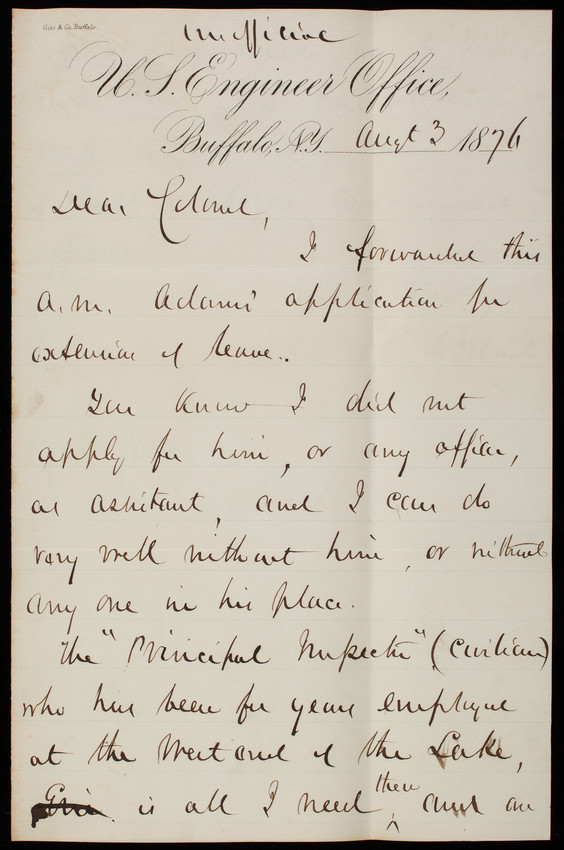 Gies & Co. Buffalo.
Unofficial
U. S. Engineer Office,
Buffalo, N.Y. Augt 3 1876
Dear Colonel,
I forwarded this
a.m. Adams' application for
extension of leave.
You know I did not
apply for him, or any officer,
as assistant, and I can do
very well without him, or without
any one in his place.
The "Principal Inspector" (civilian)
who has been for years employed
at the West end of the Lake,
Erie is all I need then, and an